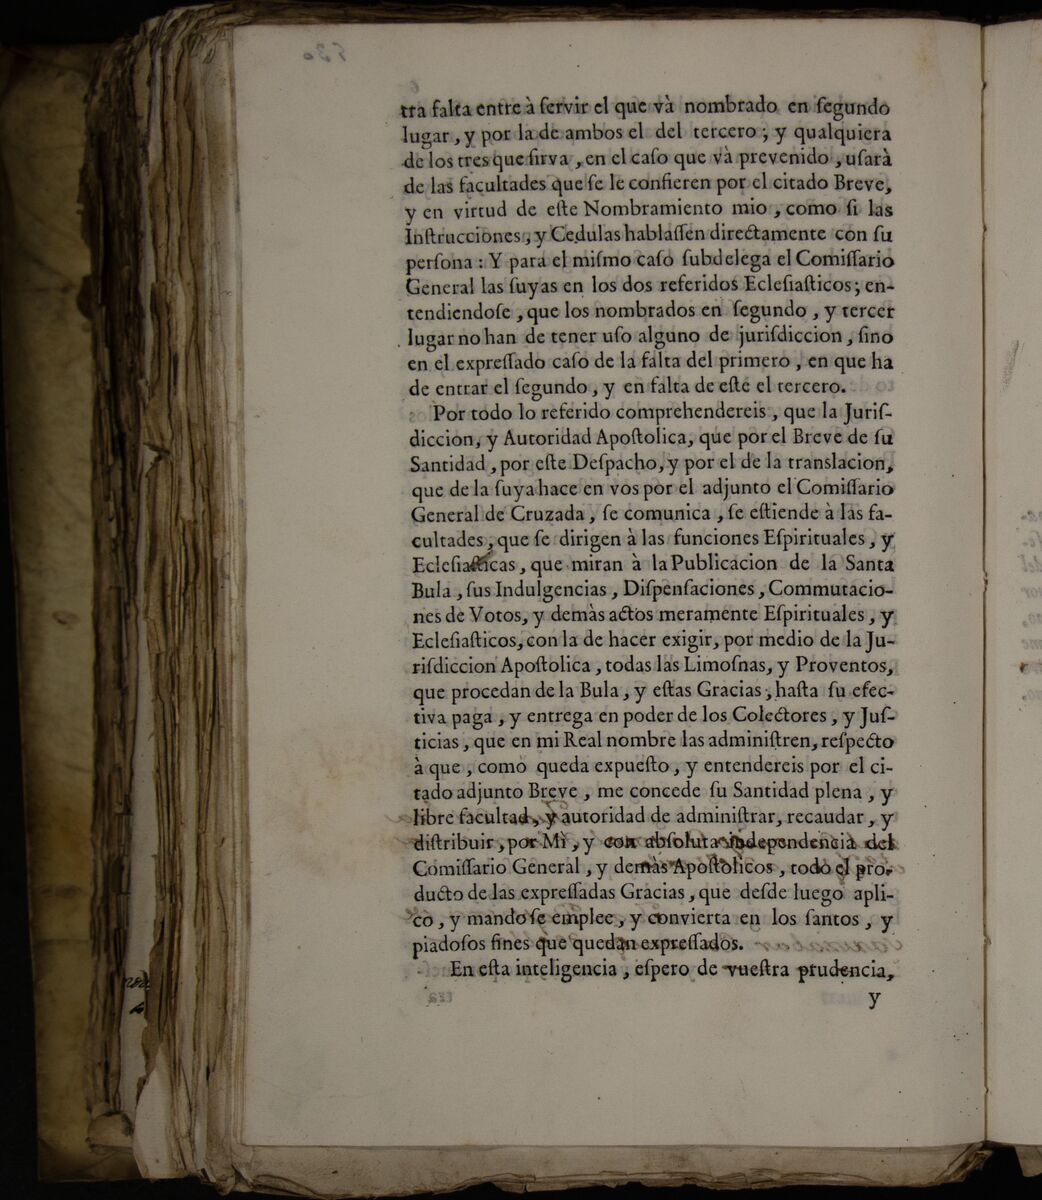 tra falta entre à ſervir el que và nombrado en ſegundo
lugar, y por la de ambos el del tercero; y qualquiera
de los tres que ſirva, en el caſo que và prevenido, uſarà
de las facultades que ſe le confieren por el citado Breve,
y en virtud de eſte Nombramiento mio, como ſi las
Inſtrucciones, y Cedulas hablaſſen directamente con ſu
perſona: Y para el miſmo caſo ſubdelega el Comiſſario
General las ſuyas en los dos referidos Ecleſiaſticos; en-
tendiendoſe, que los nombrados en ſegundo, y tercer
lugar no han de tener uſo alguno de juriſdiccion, ſino
en el expreſſado caſo de la falta del primero, en que ha
de entrar el ſegundo, y en falta de eſte el tercero.
Por todo lo referido comprehendereis, que la Juriſ-
diccion, y Autoridad Apoſtolica, que por el Breve de ſu
Santidad, por eſte Deſpacho, y por el de la translacion,
que de la ſuya hace en vos por el adjunto el Comiſſario
General de Cruzada, ſe comunica, ſe eſtiende à las fa-
cultades, que ſe dirigen à las funciones Eſpirituales, y
Ecleſiaſticas, que miran à la Publicacion de la Santa
Bula, ſus Indulgencias, Diſpenſaciones, Commutacio-
nes de Votos, y demàs actos meramente Eſpirituales, y
Ecleſiaſticos, con la de hacer exigir, por medio de la Ju-
riſdiccion Apoſtolica, todas las Limoſnas, y Proventos,
que procedan de la Bula, y eſtas Gracias, haſta ſu efec-
tiva paga, y entrega en poder de los Colectores, y Juſ-
ticias, que en mi Real nombre las adminiſtren, reſpecto
à que, como queda expueſto, y entendereis por el ci-
tado adjunto Breve, me concede ſu Santidad plena, y
libre facultad, y autoridad de adminiſtrar, recaudar, y
diſtribuir, por Mì, y con abſoluta independencia del
Comiſſario General, y demàs Apoſtolicos, todo el pro-
ducto de las expreſſadas Gracias, que deſde luego apli-
cò, y mando ſe emplee, y convierta en los ſantos, y
piadoſos fines que quedan expreſſados.
En eſta inteligencia, eſpero de vueſtra prudencia,
y